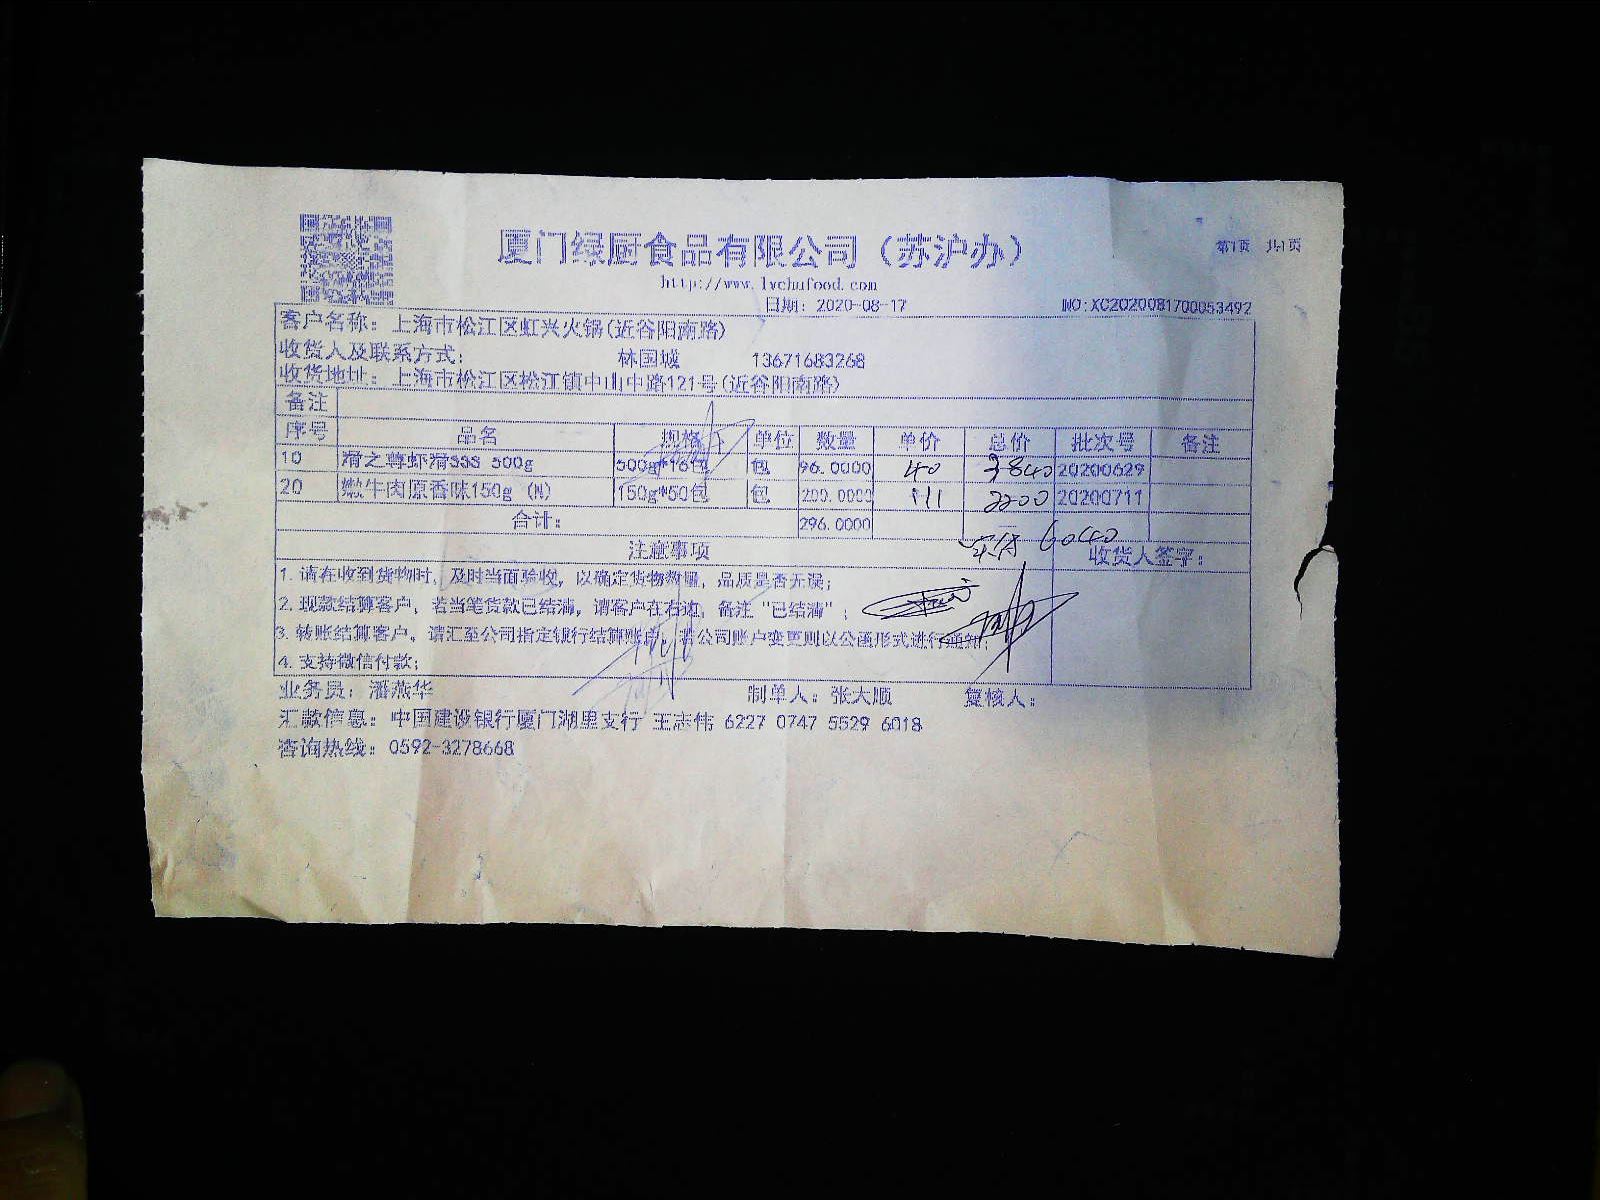 厦门绿厨食品有限公司（苏沪办） 第1页 共1页
http://www.lvchufood.com
日期：2020-08-17 NO:XC2020081700053492
客户名称：上海市松江区虹兴火锅(近谷阳南路)
收货人及联系方式： 林国城 13671683268
收货地址：上海市松江区松江镇中山中路121号(近谷阳南路)
备注
序号 品名 规格 单位 数量 单价 总价 批次号 备注
10 滑之尊虾滑SSS 500g 500g*16包 包 96.0000 40 3840 20200629
20 嫩牛肉原香味150g (N) 150g*50包 包 200.0000 111 2200 20200711
合计： 296.0000
6040
注意事项 收货人签字：
1. 请在收到货物时，及时当面验收，以确定货物数量，品质是否无误；
2. 现款结算客户，若当笔货款已结清，请客户在右边，备注“已结清”；
3. 转账结算客户。请汇至公司指定银行结算账户，若公司账户变更则以公函形式进行通知；
4. 支持微信付款；
业务员：潘燕华 制单人：张大顺 复核人：
汇款信息：中国建设银行厦门湖里支行 王志伟 6227 0747 5529 6018
咨询热线：0592-3278668